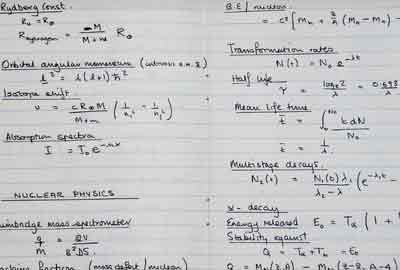 Rydberg Const.
R₀ = R∞
R_hydrogen = M / (M + m) R∞
Orbital angular momentum (intrinsic a.m. s)
l² = l(l+1)ħ²
Isotope shift.
ν = cR∞M / (M + m) (1/n₁² - 1/n₂²)
Absorption spectra
I = I₀e^-nx
NUCLEAR PHYSICS
mass spectrometer
q/M = 2V / B²DS
fraction (mass defect / nucleon)
B.E / nucleon
= c² [Mn + Z/A (MH - Mn) -
Transformation rates.
N(t) = N₀ e^-λt
Half life
τ = loge2 / λ = 0.693 / λ
Mean life time
t̄ = ∫₀^N₀ t dN / N₀
t̄ = 1/λ
Multistage decays.
N₂(t) = N₁(0) λ₁ / (λ₂ - λ) (e^-λ₁t -
α - decay
Energy released E₀ = Tα (1 +
Stability against
Q = Tα + Tb = E₀
Q = Mn(Z,A) - Mn(Z-2, A-4)